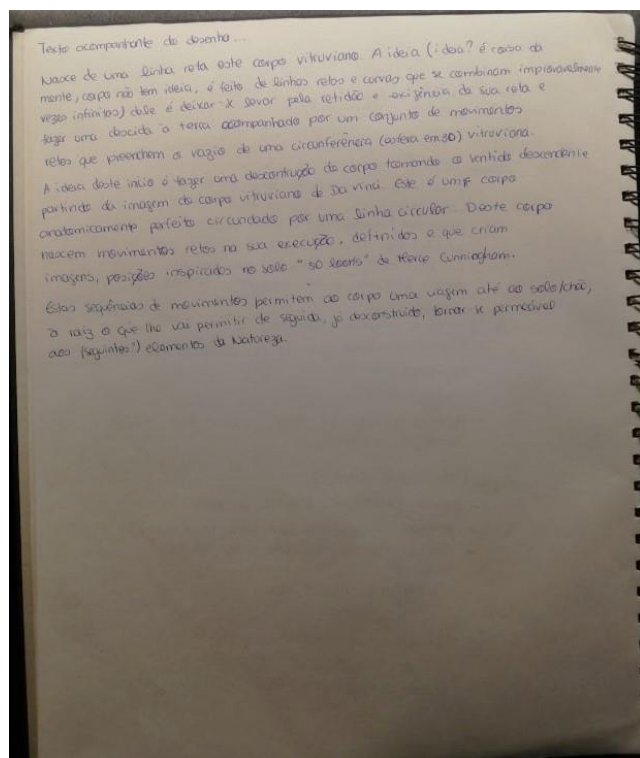 Texto acompanhante do desenho...
Nasce de uma linha reta este corpo vitruviano. A ideia (ideia? é coisa da
mente, corpo não tem ideia, é feito de linhas retas e curvas que se combinam improvavelmente
vezes infinitas) dele é deixar-se levar pela retidão e exigência da sua reta e
fazer uma descida à terra acompanhado por um conjunto de movimentos
retos que preenchem o vazio de uma circunferência (esfera em 3D) vitruviana.
A ideia deste início é fazer uma desconstrução do corpo tomando o sentido descendente
partindo da imagem do corpo vitruviano de Da Vinci. Este é um corpo
anatomicamente perfeito circundado por uma linha circular. Deste corpo
nascem movimentos retos na sua execução, definidos e que criam
imagens, posições inspirados no solo "50 looks" de Merce Cunningham.
Estas sequências de movimentos permitem ao corpo uma viagem até ao solo/chão,
à raiz o que lhe vai permitir de seguida, já desconstruído, tornar-se permeável
aos (seguintes!) elementos da Natureza.